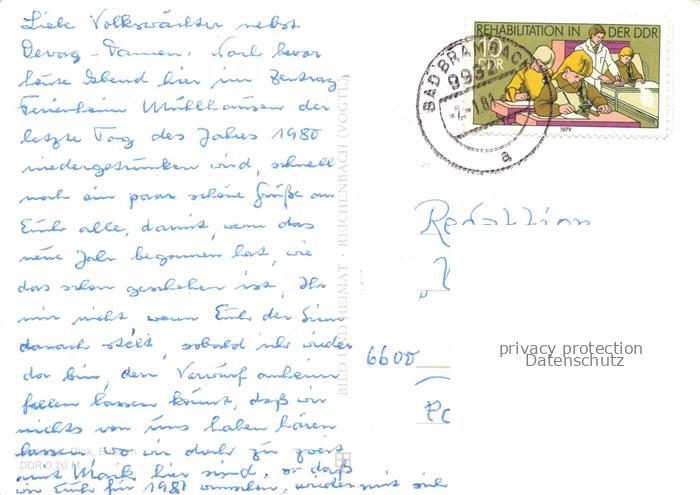 Liebe Volkswächter nebst
Devag-Damen! Noch bevor
heute Abend hier im Zentrag
Ferienheim Mühlhausen der
letzte Tag des Jahres 1980
niedergetrunken wird, schnell
noch ein paar schöne Grüße an
Euch alle, damit, wenn das
neue Jahr begonnen hat, wie
das schon geschehen ist, Ihr
mir nicht, wenn Euch der Sinn
danach steht, sobald ich wieder
da bin, den Vorwurf anheim
fallen lassen könnt, daß wir
nichts von uns haben hören
lassen, wo wir doch zu zweit
mit Marik hier sind, so daß
wir Euch für 1981 wünschen,
DDR 0,20 M
BILD UND HEIMAT · REICHENBACH (VOGTL)
REHABILITATION IN DER DDR
10
DDR
1979
BAD BRAMBACH
9932
-2.-1.81
a
Redaktion
„V
6600
Po
privacy protection
Datenschutz